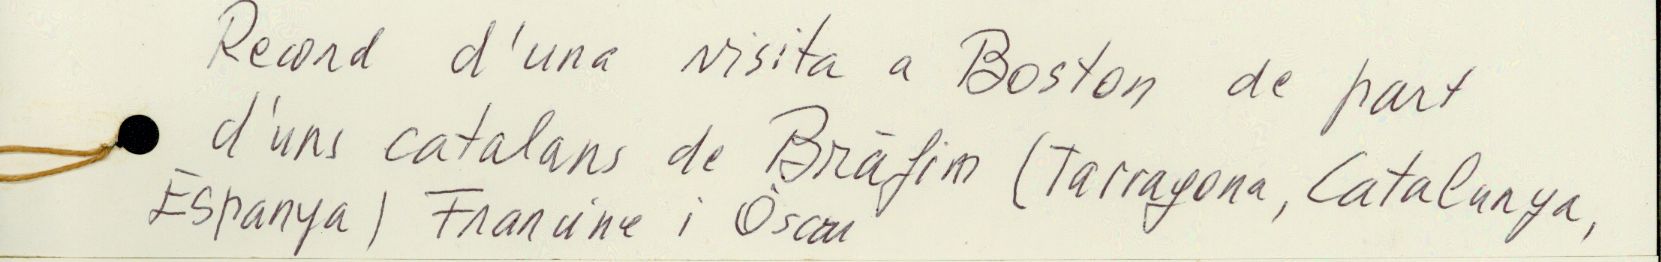 Record d'una visita a Boston de part
d'uns catalans de Bràfim (Tarragona, Catalunya,
Espanya) Francine i Òscar